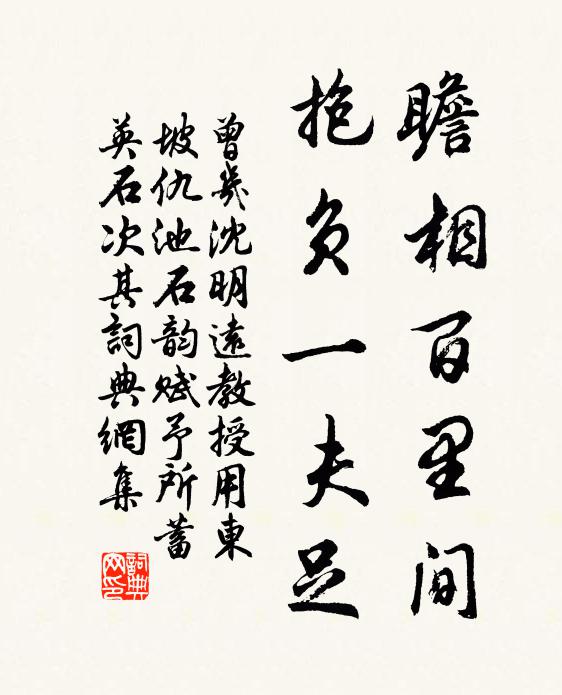 瞻相百里间
抱负一夫足
曾幾沈明遠教授用東
坡仇池石韵赋予所蓄
英石次其詞典網集
詞典
网印